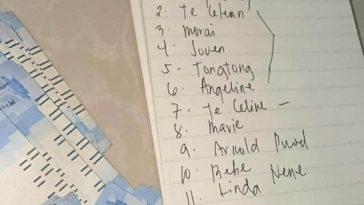 2. Te
3. morai
4. Joven
5- Tongtong
6. Angeline
7. Te Celine -
8. Mavie
9. Arnold
10. Bebe Nene
11. Linda